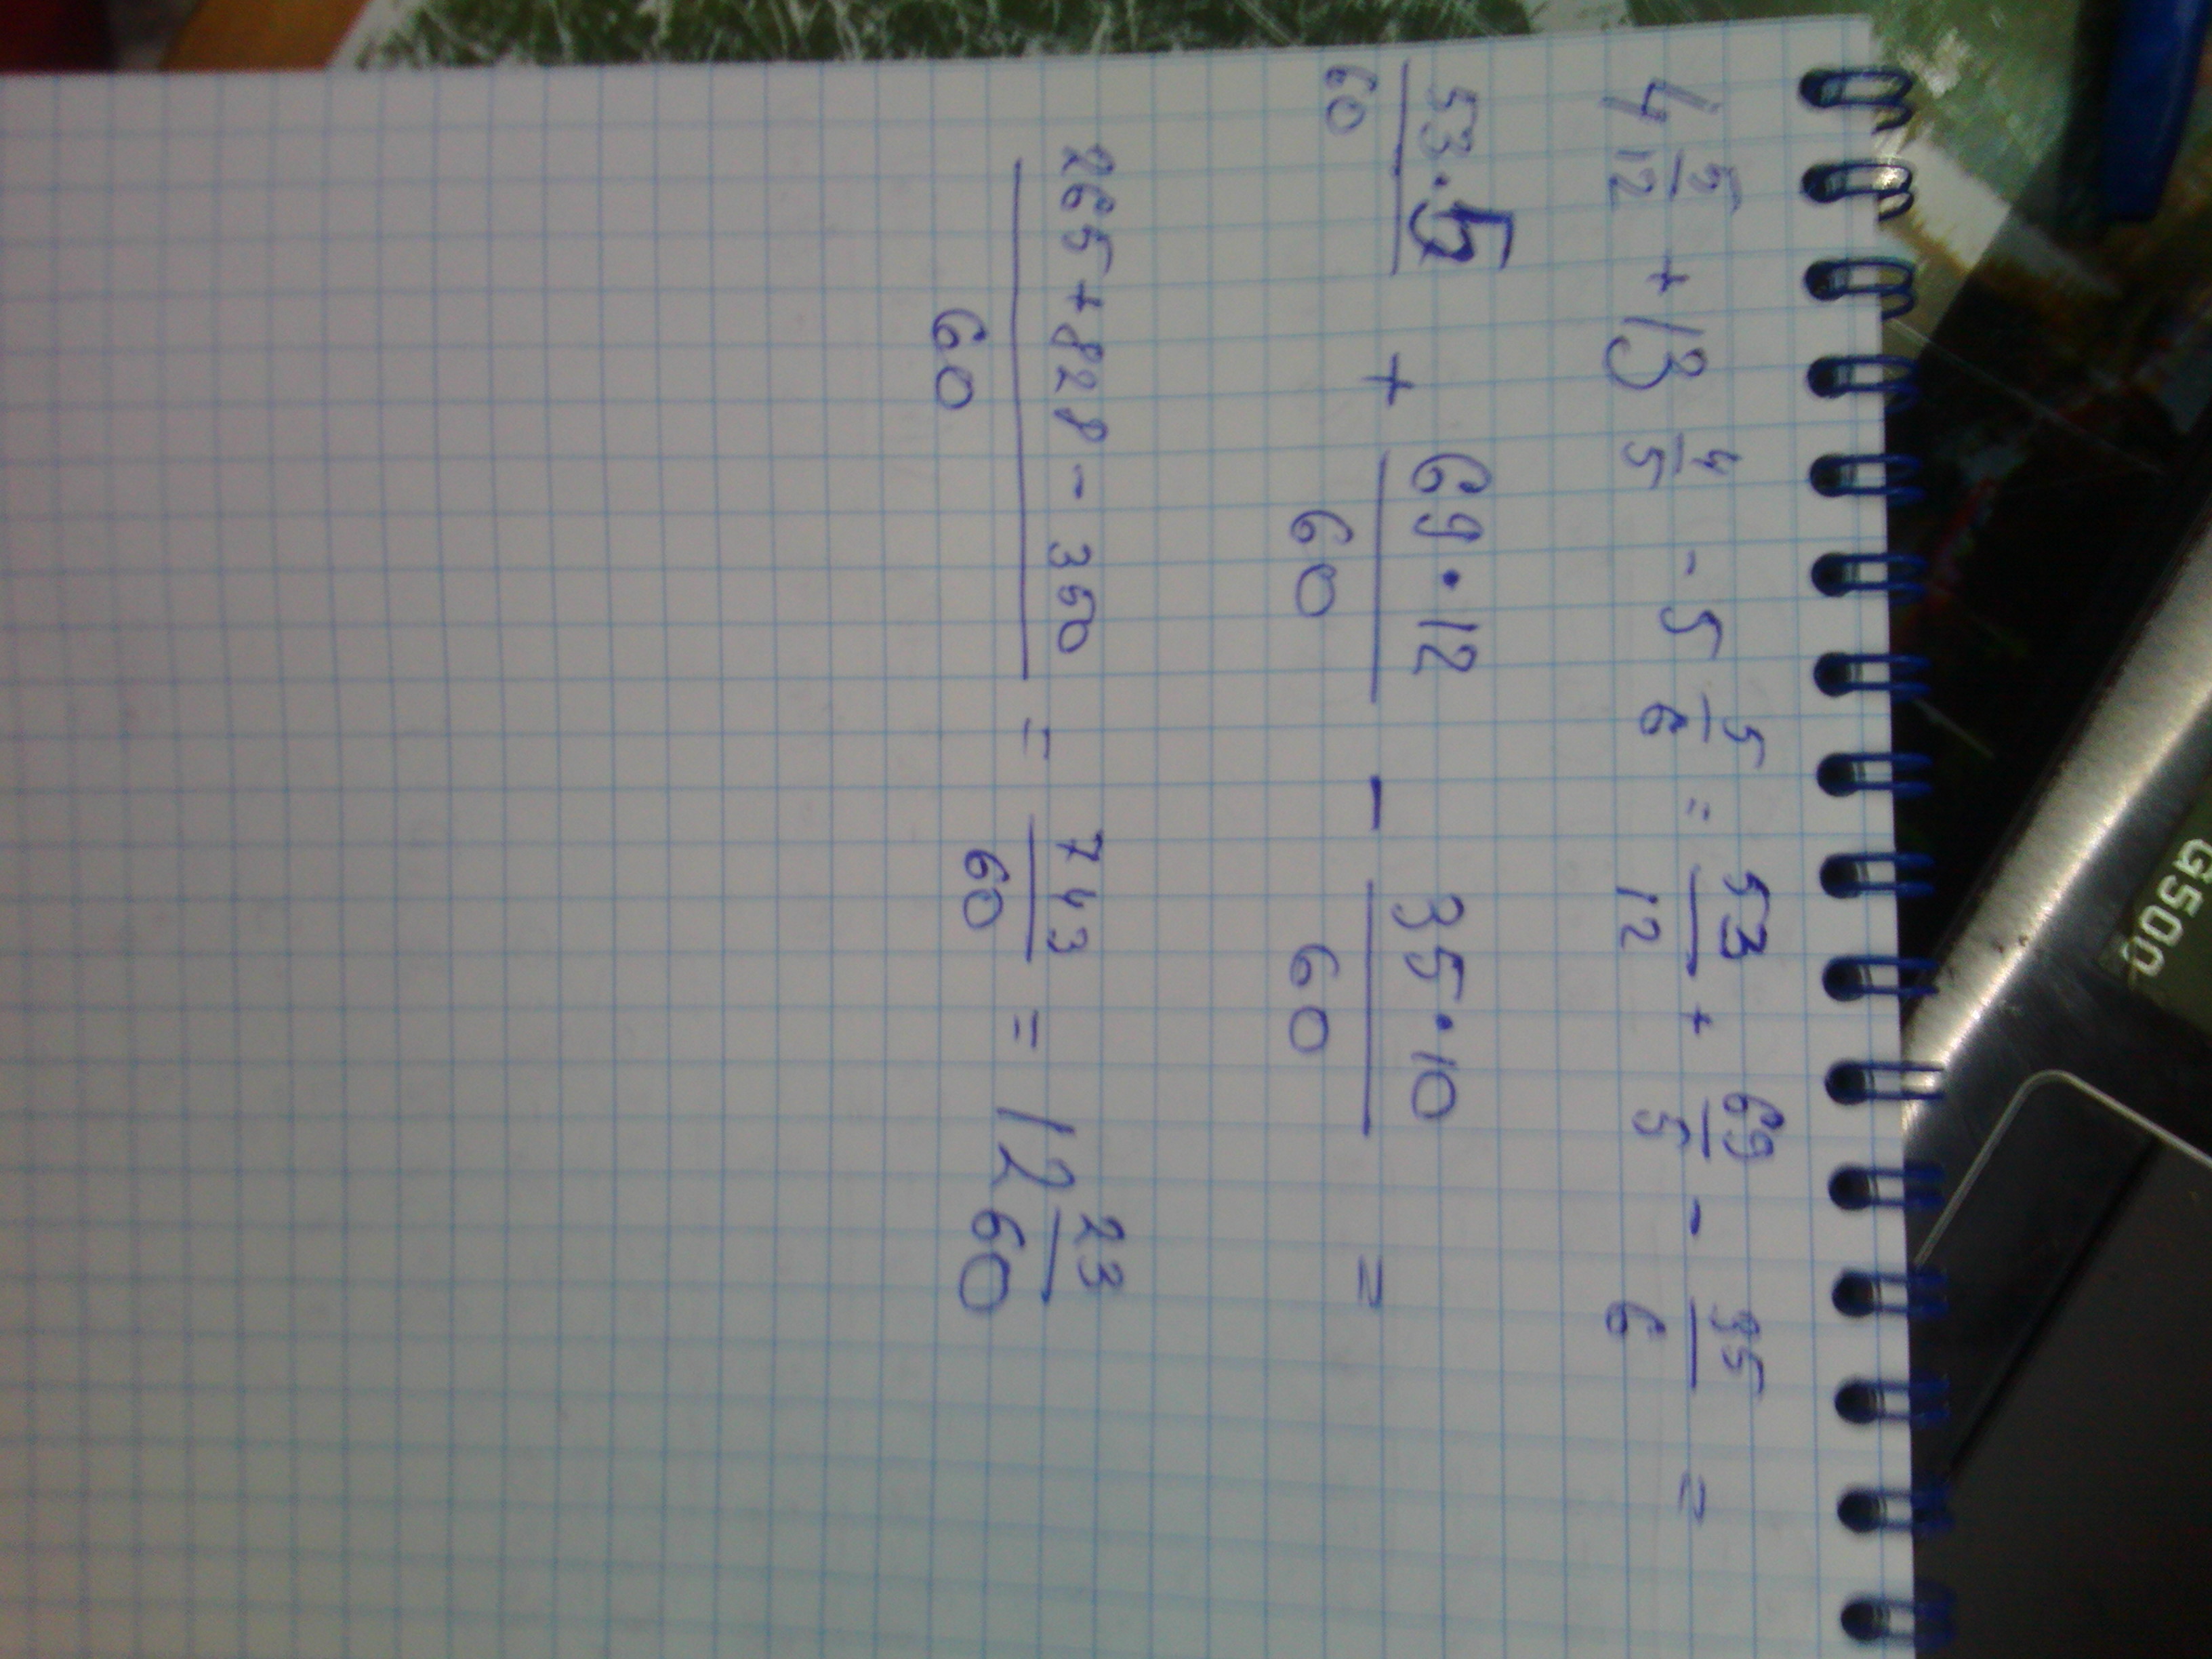 4 5/12 + 13 4/5 - 5 5/6 = 53/12 + 69/5 - 35/6 =
53·5/60 + 69·12/60 - 35·10/60 =
265+828-350/60 = 743/60 = 12 23/60
G500